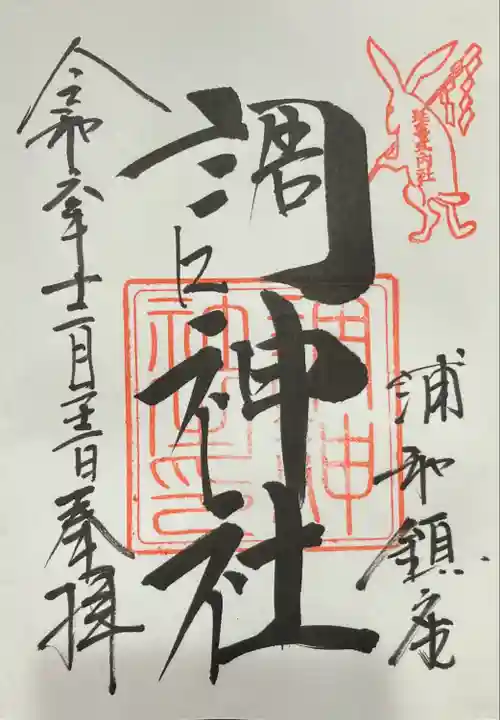 延喜式内社
浦和鎮座
調神社
令和六年十二月 日奉拝